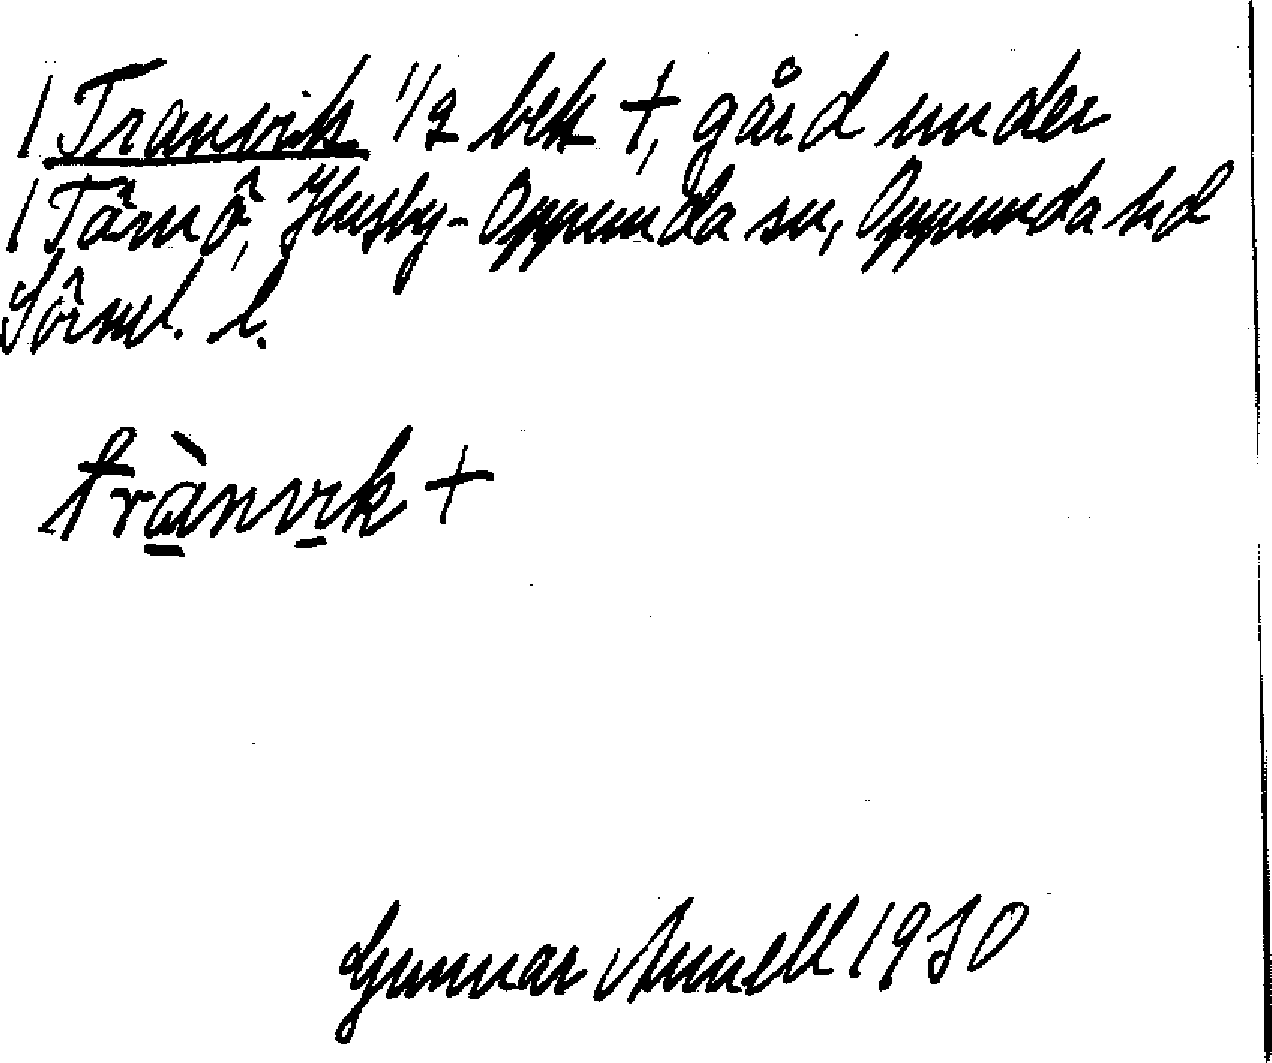 / Tranvik 1/2 bek +, gård under
/ Tärnö, Husby-Oppunda sn, Oppunda hd
Sörml. l.
trànvik +
Gunnar Annell 1930